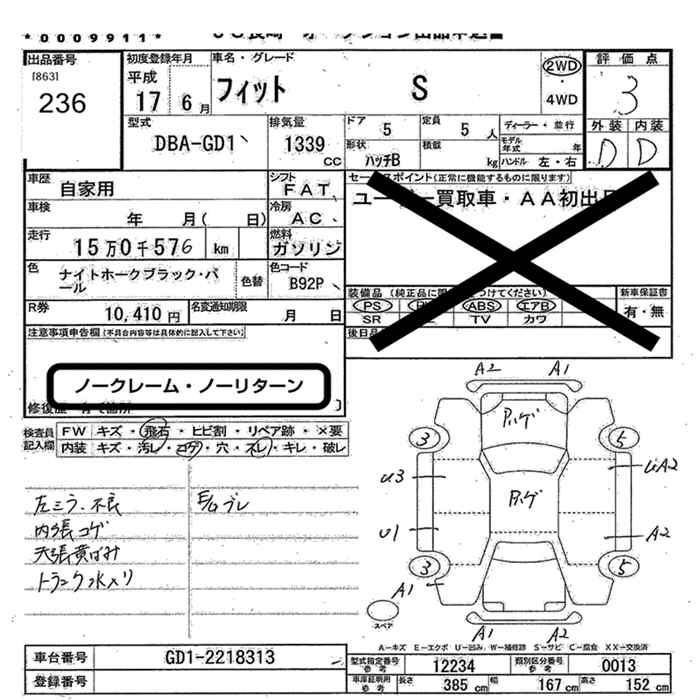 *0009911*
出品番号
[863]
236
初度登録年月
平成
17 6月
車名・グレード
フィット S
2WD
・
4WD
評価点
3
外装 内装
D D
型式
DBA-GD1
排気量
1339
CC
ドア
5
定員
5 人
形状
ハッチB
積載
kg
ディーラー・並行
モデル年式 年
ハンドル 左・右
車歴
自家用
シフト
FAT
車検
年 月( 日)
冷房
AC
走行
15万0千576 km
燃料
ガソリン
色
ナイトホークブラック・パール
色替
色コード
B92P
R券
10,410円
名変通知期限
月 日
セールスポイント(正常に機能するものに限ります)
ユーザー買取車・AA初出品
装備品
PS
ABS エアB
SR
TV カワ
新車保証書
有・無
注意事項申告欄(不具合内容等は具体的に記入して下さい)
ノークレーム・ノーリターン
検査員記入欄
FW キズ・飛石・ヒビ割・リペア跡・×要
内装 キズ・汚レ・コゲ・穴・スレ・キレ・破レ
左ミラー不良
内張コゲ
天張黄ばみ
トランク水入り
E/Gブレ
A2 A1
ハ、ゲ
3 5
U3
UA2
ハ、ゲ
U1
A2
3 5
A1
スペア
A1 A2
A-キズ E-エクボ U-凹み W-補修跡 S-サビ C-腐食 XX-交換済
車台番号
GD1-2218313
登録番号
型式指定番号
参考
12234
類別区分番号
参考
0013
車庫証明用
参考
長さ 385 cm
幅 167 cm
高さ 152 cm